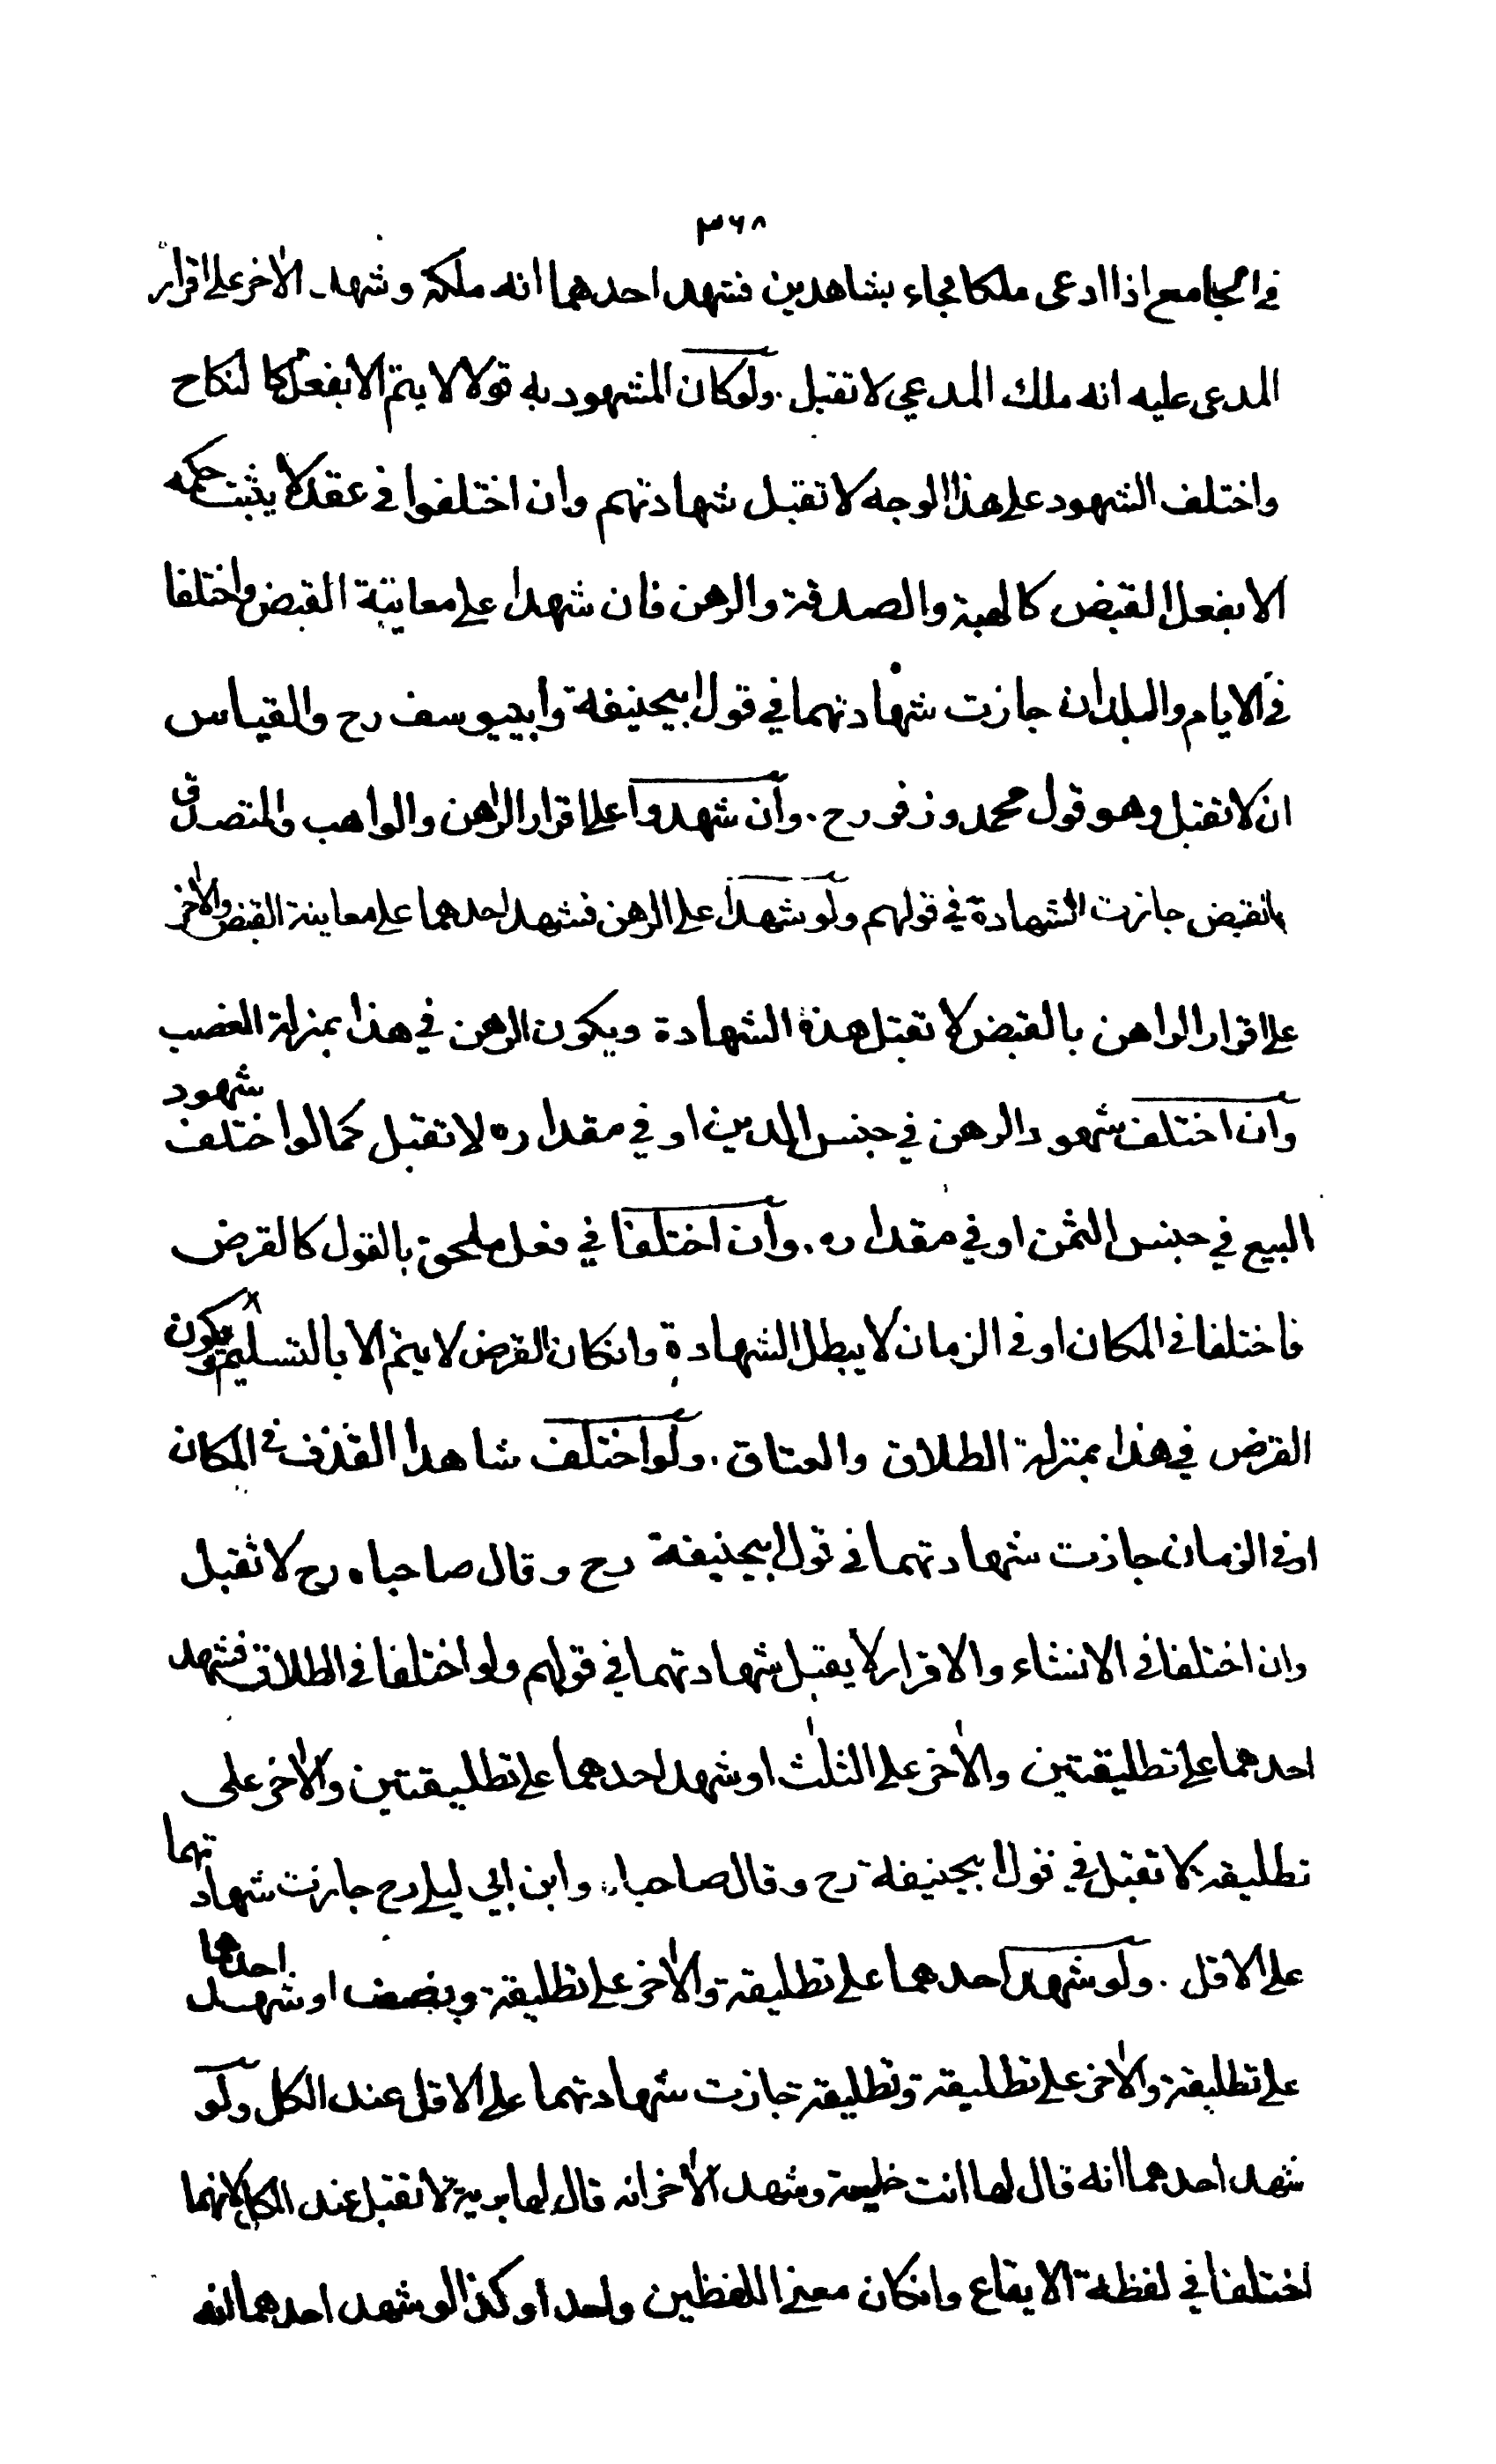 ٣٦٨
في الجامع اذا ادعى ملكا فجاء بشاهدين فشهد احدهما انه ملكه وشهد الاٰخر على اقرار
المدعى عليه انه ملك المدعي لا تقبل . ولو كان المشهود به قولا لا يتم الا بفعل كا لنكاح
واختلف الشهود على هذا الوجه لا تقبل شهادتهم وان اختلفوا في عقد لا يثبت حكمه
الا بفعل القبض كالهبة والصدقة والرهن فان شهدا على معاينة القبض واختلفا
في الايام والبلدان جازت شهادتهما في قول ابيحنيفة وابييوسف رح والقياس
ان لا تقبل وهو قول محمد وزفر رح . وان شهدوا على اقرار الراهن والواهب والمتصدق
بالقبض جازت الشهادة في قولهم ولو شهدا على الرهن فشهد احدهما على معاينة القبض والاٰخر
على اقرار الراهن بالقبض لا تقبل هذه الشهادة ويكون الرهن في هذا بمنزلة الغصب
وان اختلف شهود الرهن في جنس الدين او في مقداره لا تقبل كما لو اختلف شهود
البيع في جنس الثمن او في مقداره . وان اختلفا في فعل ملحق بالقول كالقرض
فاختلفا في المكان او في الزمان لا يبطل الشهادة وانكان القرض لا يتم الا بالتسليم ويكون
القرض في هذا بمنزلة الطلاق والعتاق . ولو اختلف شاهدا القذف في المكان
او في الزمان جازت شهادتهما في قول ابيحنيفة رح وقال صاحباه رح لا تقبل
وان اختلفا في الانشاء والاقرار لا يقبل شهادتهما في قولهم ولو اختلفا في الطلاق فشهد
احدهما على تطليقتين والاٰخر على الثلٰث او شهد احدهما على تطليقتين والاٰخر على
تطليقة لا تقبل في قول ابيحنيفة رح وقال صاحباه وابن ابي ليلى رح جازت شهادتهما
على الاقل . ولو شهد احدهما على تطليقة والاٰخر على تطليقة ونصف او شهد احدهما
على تطليقة والاٰخر على تطليقة وتطليقة جازت شهادتهما على الاقل عند الكل ولو
شهد احدهما انه قال لها انت خلية وشهد الاٰخر انه قال لها برية لا تقبل عند الكل لانهما
اختلفا في لفظة الايقاع وانكان معنى اللفظين واحدا وكذا لو شهد احدهما انه